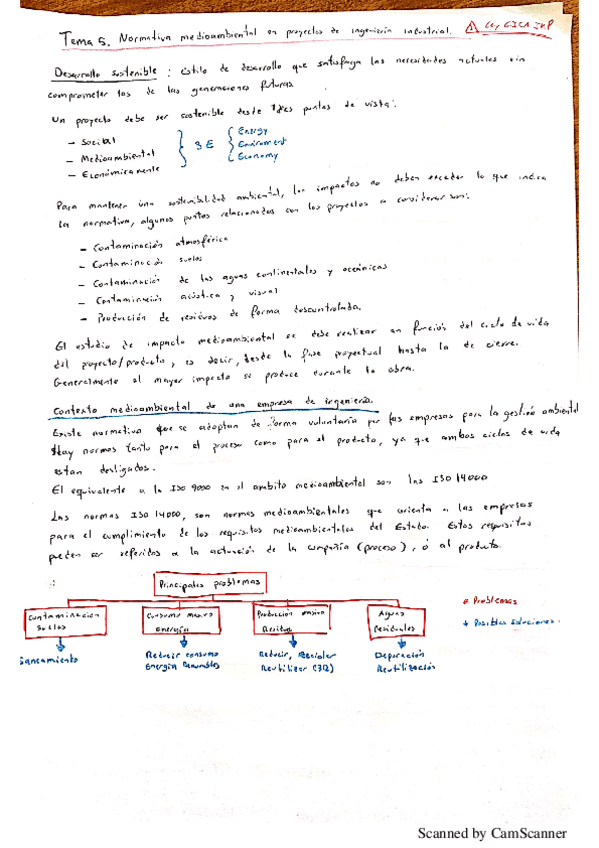 Tema 5. Normativa medioambiental en proyectos de ingeniería industrial.
Desarrollo sostenible: Estilo de desarrollo que satisfaga las necesidades actuales sin
comprometer las de las generaciones futuras.
Un proyecto debe ser sostenible desde tres puntos de vista:
- Social
- Medioambiental
- Económicamente
3E
Energy
Enviroment
Economy
Para mantener una sostenibilidad ambiental, los impactos no deben exceder lo que indica
la normativa, algunos puntos relacionados con los proyectos a considerar son:
- Contaminación atmosférica
- Contaminación suelos
- Contaminación de las aguas continentales y oceánicas
- Contaminación acústica y visual
- Producción de residuos de forma descontrolada.
El estudio de impacto medioambiental se debe realizar en función del ciclo de vida
del proyecto/producto, es decir, desde la fase proyectual hasta la de cierre.
Generalmente el mayor impacto se produce durante la obra.
Contexto medioambiental de una empresa de ingeniería.
Existe normativa que se adoptan de forma voluntaria por las empresas para la gestión ambiental
Hay normas tanto para el proceso como para el producto, ya que ambos ciclos de vida
están desligados.
El equivalente a la ISO 9000 en el ámbito medioambiental son las ISO 14000
Las normas ISO 14000, son normas medioambientales que orienta a las empresas
para el cumplimiento de los requisitos medioambientales del Estado. Estos requisitos
pueden ser referidos a la actuación de la compañía (proceso), ó al producto.
Principales problemas
Contaminación
Suelos
Consumo masivo
Energía
Producción masiva
Residuos
Aguas
residuales
Saneamiento
Reducir consumo
Energía Renovables
Reducir, Reciclar
Reutilizar (3R)
Depuración
Reutilización
* Problemas
* Posibles soluciones.
Scanned by CamScanner